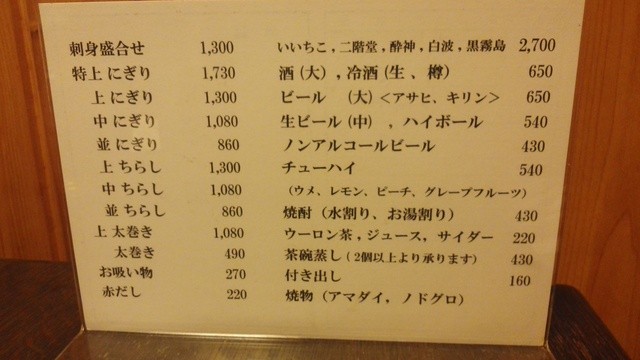 刺身盛合せ 1,300
特上 にぎり 1,730
上 にぎり 1,300
中 にぎり 1,080
並 にぎり 860
上 ちらし 1,300
中 ちらし 1,080
並 ちらし 860
上 太巻き 1,080
太巻き 490
お吸い物 270
赤だし 220
いいちこ, 二階堂, 酔神, 白波, 黒霧島 2,700
酒 (大) , 冷酒 (生 、樽) 650
ビール (大) <アサヒ、キリン> 650
生ビール (中) , ハイボール 540
ノンアルコールビール 430
チューハイ 540
(ウメ、レモン、ピーチ、グレープフルーツ)
焼酎 (水割り、お湯割り) 430
ウーロン茶, ジュース, サイダー 220
茶碗蒸し (2個以上より承ります) 430
付き出し 160
焼物 (アマダイ, ノドグロ)